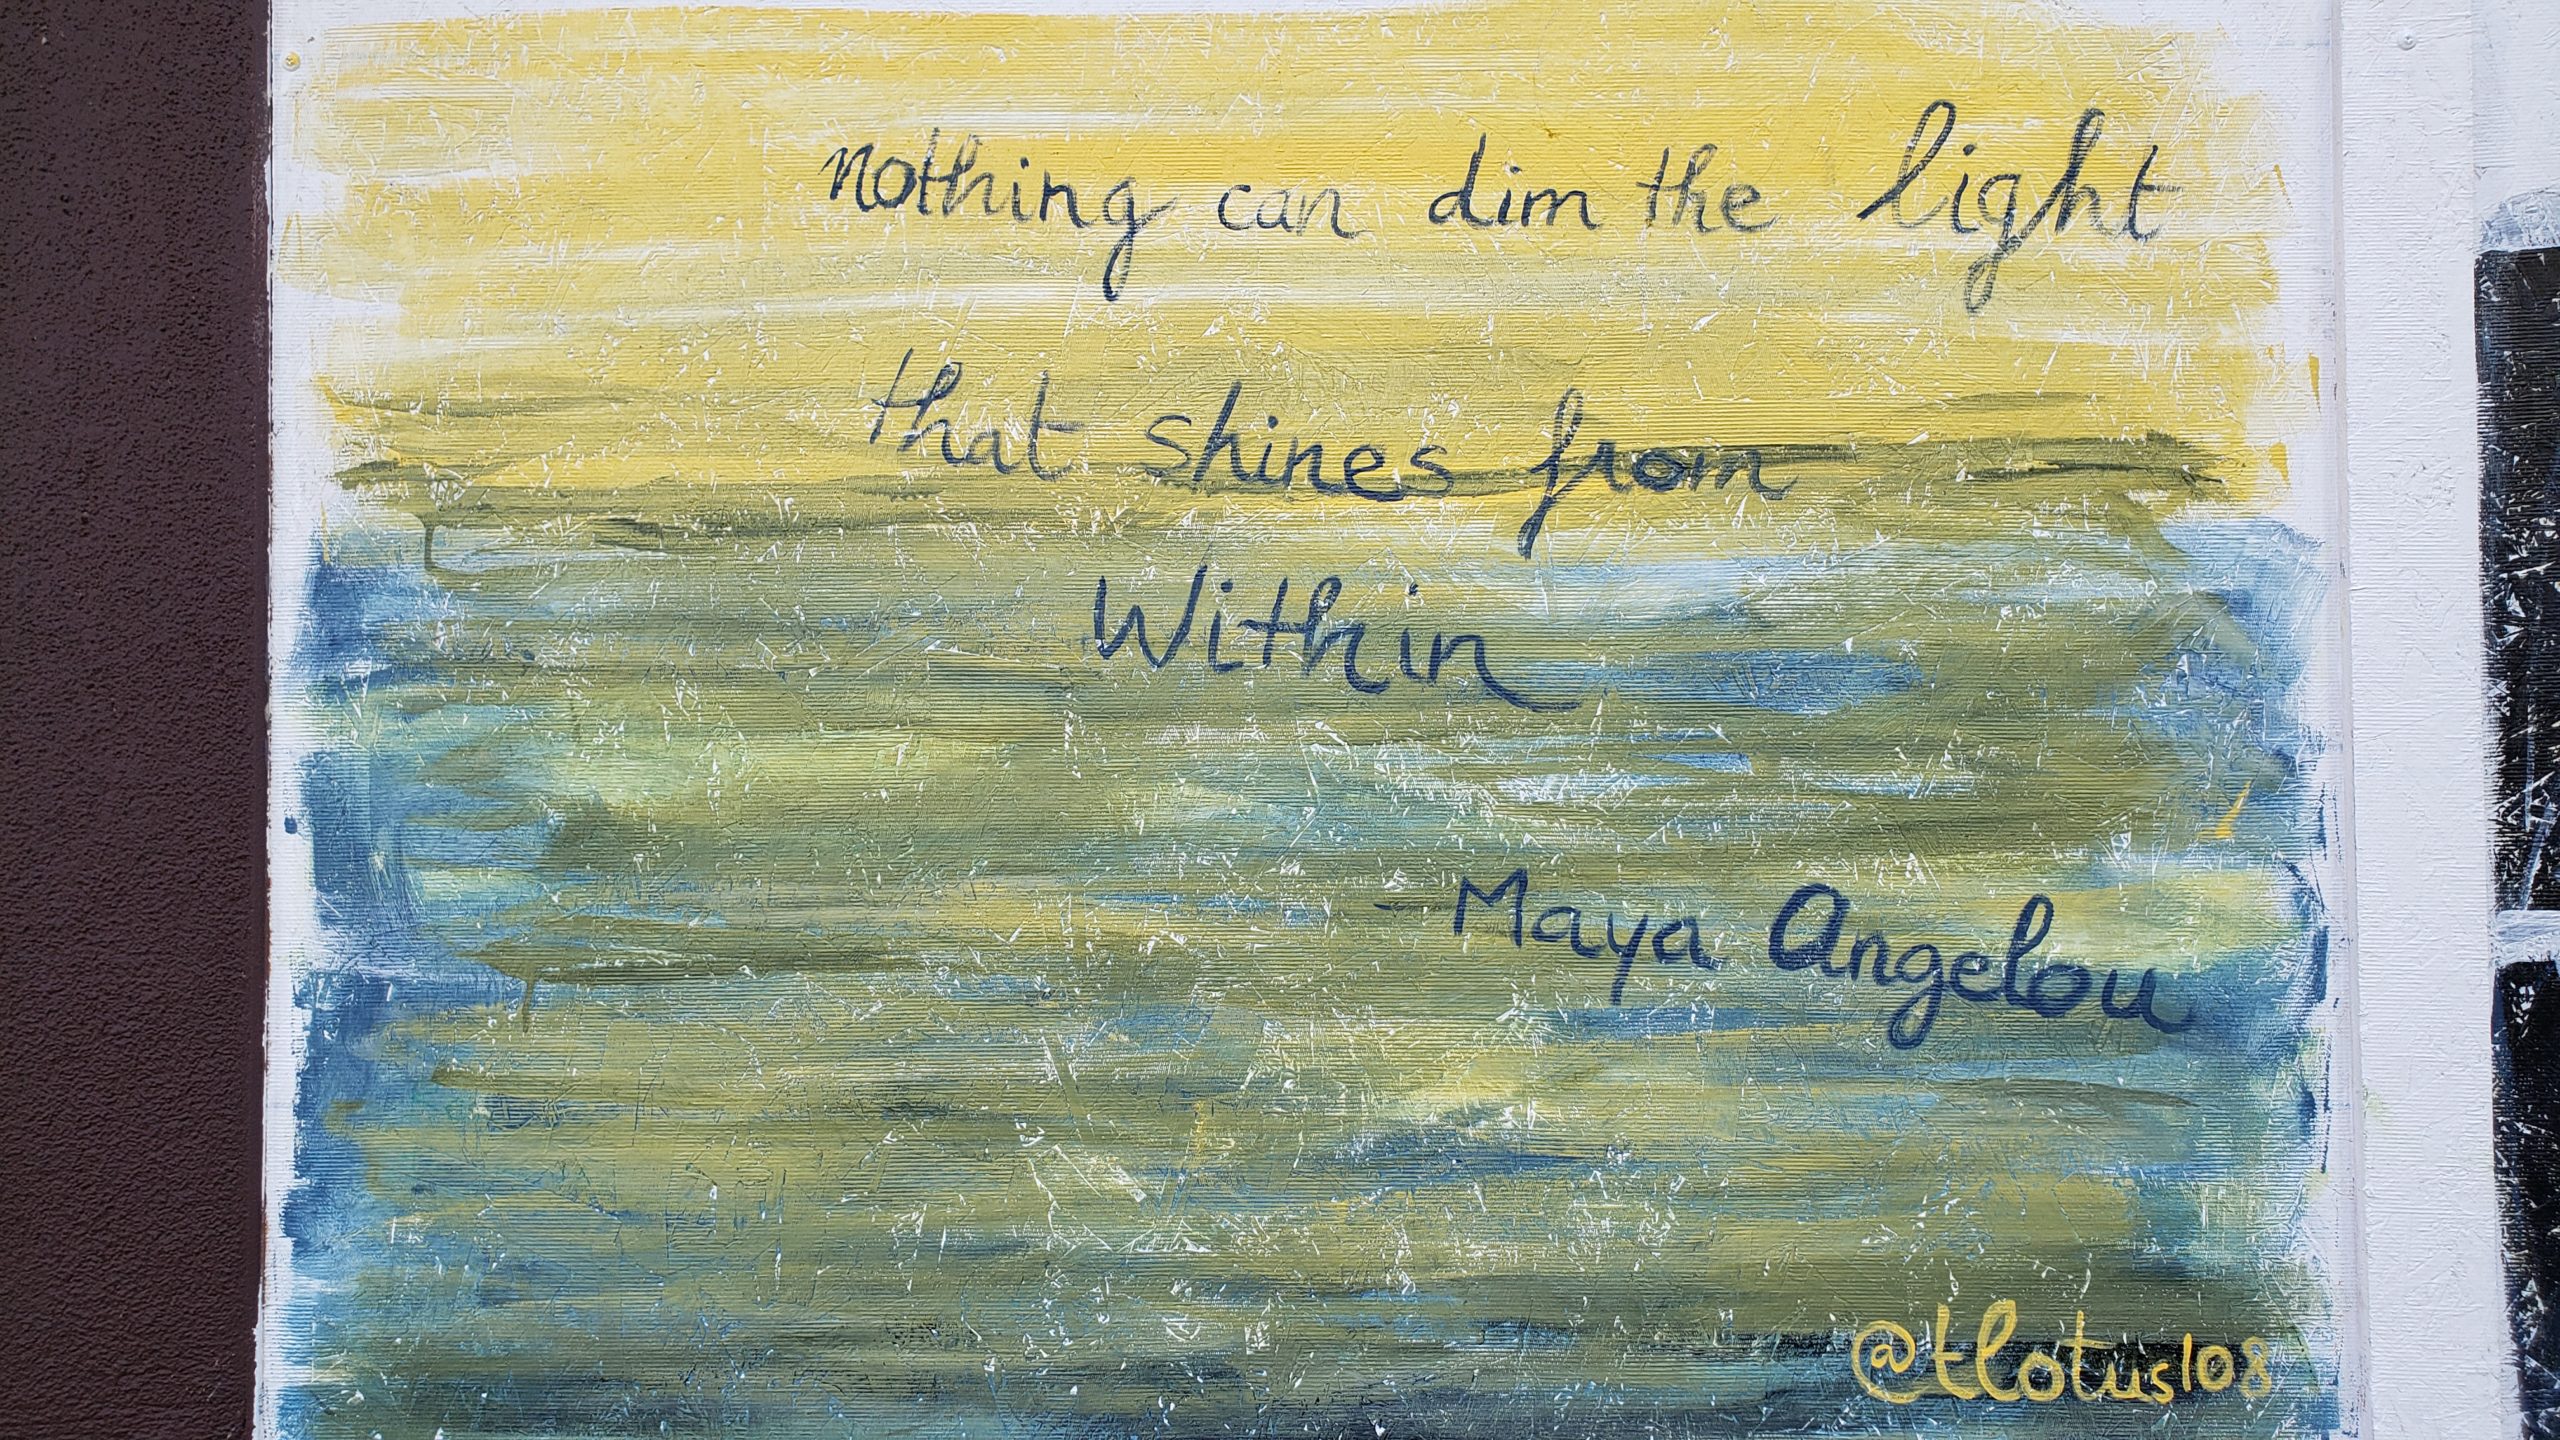 nothing can dim the light
that shines from
Within
- Maya Angelou
@tlotus108